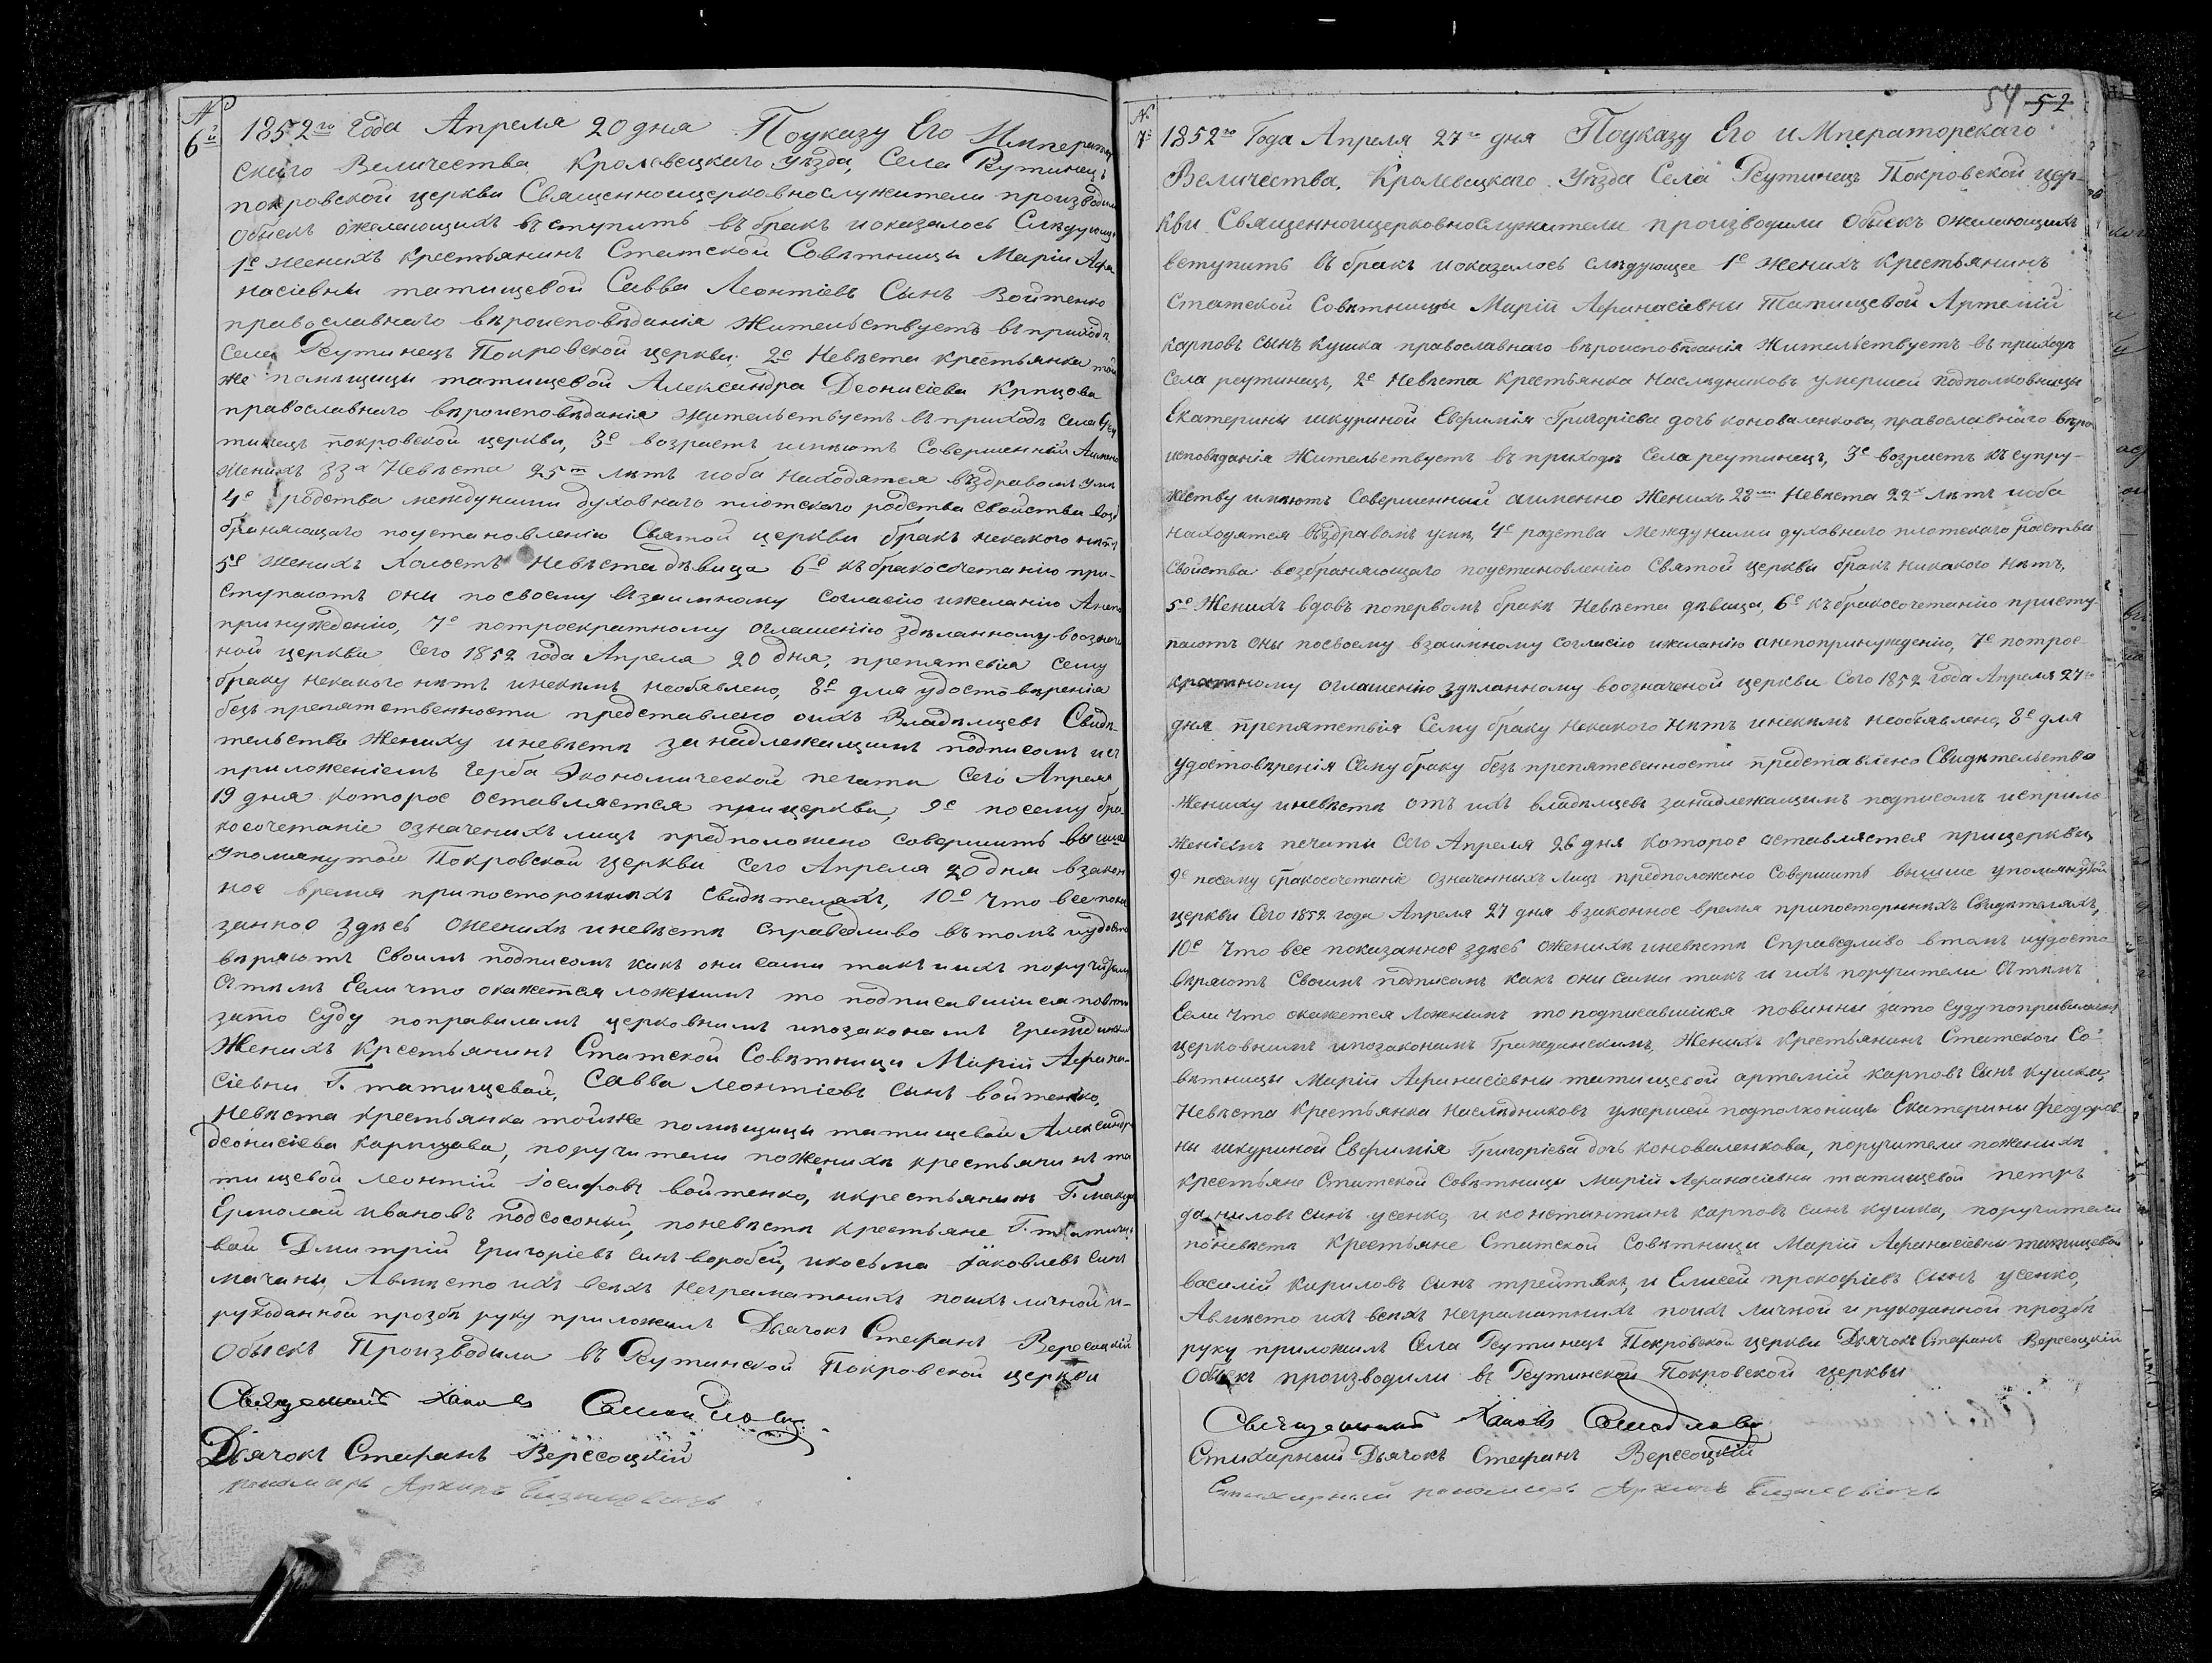 №
6й
1852го Года Апреля 20 дня Поуказу Его Император
скаго Величества, Кролевецкаго уѣзда, Села Реутинецъ
покровской церкви Священноицерковнослужители производили
Обыскъ ожелающихъ вступить въ бракъ иоказалось Слѣдующе
1е женихъ крестьянинъ Статской Совѣтницы Маріи Афа
насіевны татищевой Савва Леонтіевъ Сынъ Войтенко
православнаго вѣроисповѣданія жительствуетъ въ приходѣ
Села Реутинецъ Покровской церкви, 2е Невѣста крестьянка той
же помѣщицы татищевой Александра Деонисіева
православнаго вѣроисповѣданія жительствуетъ въ приходѣ села Реу
тинецъ покровской церкви, 3е возрастъ имѣютъ Совершенній Аименно
женихъ 33х Невѣста 25ти лѣтъ иоба находятся въздравомъ умѣ
4е родства междуними духовнаго плотскаго родства свойства воз
браняющаго поустановленію Святой церкви бракъ некакого нѣтъ
5е женихъ холостъ Невѣста дѣвица 6е къ бракосочетанію при-
ступаютъ они посвоему взаимному согласію ижеланію Анепо
принужденію, 7е потроекратному оглашенію здѣланному воозначе
ной церкви Сего 1852 года Апреля 20 дня, препятствія сему
браку некакого нѣтъ инекимъ необявлено, 8е для удостовѣренія
безъ препятственности представлено оихъ Владѣльцевъ Свидѣ
тельства жениху иневѣстѣ за надлежащимъ подписомъ ис
приложеніемъ герба Экономической печати Сего Апреля
19 дня которое оставляется прицеркви, 9е посему бра-
косочетаніе означенихъ лицъ предположено совершить выше
упомянутой Покровской церкви сего Апреля 20 дня взакон
ное время припосторонихъ свидѣтеляхъ, 10е что все пока
занное здѣсь оженихѣ иневѣстѣ справедливо въ томъ иудосто
вѣряютъ своимъ подписомъ какъ они сами такъ иихъ поручители
Стѣмъ Если что окажется ложнимъ то подписавшіися повинны
зато суду поправиламъ церковнимъ ипозаконамъ гражданскимъ
Женихъ крестьянинъ Статской Совѣтницы Маріи Афана-
сіевны Г. татищевой, Савва Леонтіевъ сынъ войтенко,
Невѣста крестьянка тойже помѣщицы татищевой Александра
деонисіева, поручители поженихѣ крестьянинъ та
тищевой леонтій іосифовъ войтенко, икрестьянинъ Г.
Ермолай ивановъ подсосоный, поневѣстѣ крестьяне Г. татище
вой Дмитрій Григоріевъ синъ воробей, икосьма яковлевъ синъ
Авмѣсто ихъ всѣхъ неграматнихъ поихъ личной и-
рукоданной прозбѣ руку приложилъ Дьячокъ Стефанъ Вересоцкій
Обыскъ Производили въ Реутинской Покровской церкви
Священникъ Самойловъ
Дьячокъ Стефанъ Вересоцкій
пономарь Архипъ Базилевичъ
54 52
№
7й
1852го Года Апреля 27го дня Поуказу Его иМператорскаго
Величества, Кролевецкаго Уѣзда Села Реутинецъ Покровской цер-
кви Священноицерковнослужители производили Обыскъ ожелающихъ
вступить въ бракъ иоказалось слѣдующее 1е Женихъ Крестьянинъ
Статской Совѣтницы Маріи Афанасіевны Татищевой Артемій
карповъ сынъ кушка православнаго вѣроисповѣданія Жительствуетъ въ приходѣ
Села реутинецъ, 2е Невѣста Крестьянка Наслѣдниковъ умершей подполковницы
Екатерины шкуриной Евфимія Григоріева дочь коноваленкова, православнаго вѣро
исповѣданія Жительствуетъ въ приходѣ Села реутинецъ, 3е возрастъ къ супру-
жеству имѣютъ Совершенный аименно Женихъ 28ми Невѣста 22х лѣтъ иоба
находятся въздравомъ умѣ, 4е родства Междуними духовнаго плотскаго родства
Свойства возбраняющаго поустановленію Святой церкви бракъ никакого Нѣтъ,
5е Женихъ вдовъ попервомъ бракѣ Невѣста дѣвица, 6е къ бракосочетанію присту-
паютъ оны посвоему взаимному согласію ижеланію анепопринужденію, 7е потрое
кратному оглашенію здѣланному воозначеной церкви Сого 1852 года Апреля 27го
дня препятствія Сему браку некакого Нѣтъ инекимъ необявлено, 8е для
удостовѣренія Сему браку безъ препятсвенности представлено Свидѣтельства
Жениху иневѣстѣ отъ ихъ владѣльцевъ занадлежащимъ подписомъ исприло
женіемъ печати Сего Апреля 26 дня которое оставляется прицеркви,
9е посему бракосочетаніе означенныхъ Лицъ предположено Совершить вышше упомянутой
церкви Сего 1852 года Апреля 27 дня взаконное время припосторнихъ Свидѣтеляхъ,
10е Что все показанное здѣсь оженихѣ иневѣстѣ Справедливо втомъ иудосто
вѣряютъ Своимъ подписомъ какъ они сами такъ и ихъ поручители Стѣмъ
Если что окажется ложнымъ топодписавшіися повинны зато Суду поправиламъ
церковнимъ ипозаконамъ Гражданскимъ, Женихъ Крестьянинъ Статской Со-
вѣтницы Маріи Афанасіевны татищевой артемій карповъ Сынъ кушка,
Невѣста Крестьянка Наслѣдниковъ умершей подполконицы Екатерины Феодоров
ны шкуриной Евфимія Григоріева дочь коноваленкова, поручители поженихѣ
крестьяне Статской Совѣтницы Маріи Афанасіевны татищевой петръ
даниловъ синъ усенко и константинъ карповъ синъ кушка, поручители
поневѣстѣ Крестьяне Статской Совѣтницы Маріи Афанасіевны татищевой
василій кириловъ синъ трейтякъ, и Елисей прокофіевъ Сынъ усенко,
Авмѣсто ихъ всѣхъ неграматнихъ поихъ личной и рукоданной прозбѣ
руку приложилъ Села Реутинецъ Покровской церкви Дьячокъ Стефанъ Вересоцкій
Обыскъ производили въ Реутинской Покровской церквы
Священникъ Самойловъ
Стихарный Дьячокъ Стефанъ Вересоцкій
Стихарный пономарь Архипъ Базилевичъ